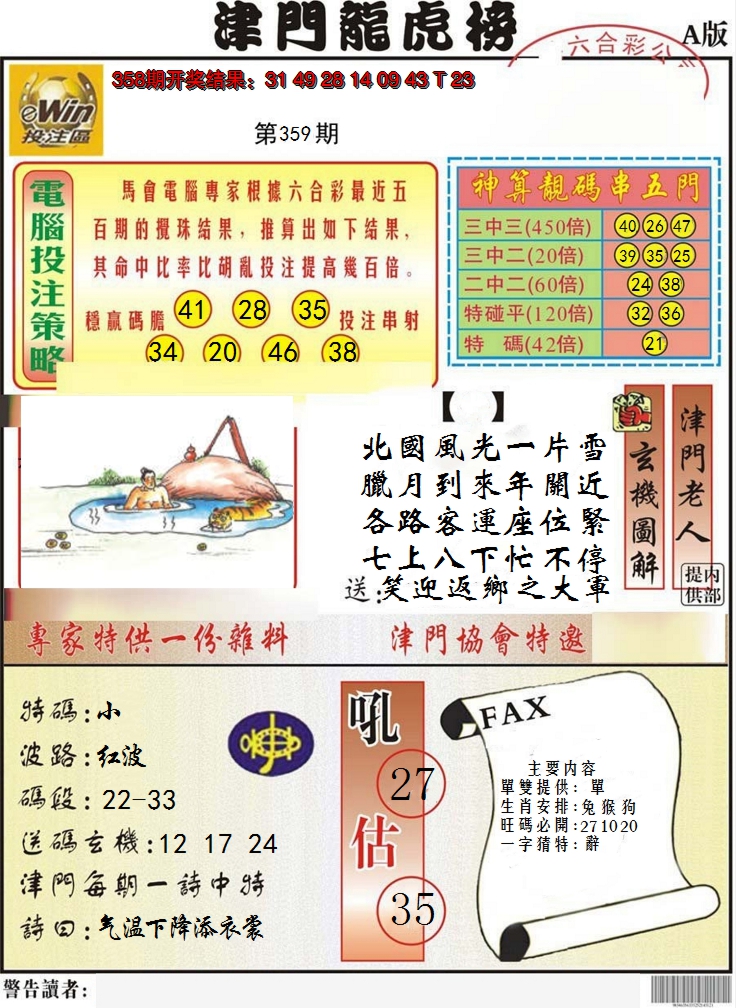 津門龍虎榜
A版
六合彩公司
358期开奖结果：31 49 28 14 09 43 T 23
eWin
投注區
第359期
電腦投注策略
馬會電腦專家根據六合彩最近五
百期的攪珠结果，推算出如下结果，
其命中比率比胡亂投注提高幾百倍。
穩贏碼膽 41 28 35 投注串射
34 20 46 38
神算靚碼串五門
三中三(450倍) 40 26 47
三中二(20倍) 39 35 25
二中二(60倍) 24 38
特碰平(120倍) 32 36
特 碼(42倍) 21
【 】
北國風光一片雪
臘月到來年關近
各路客運座位緊
七上八下忙不停
送:笑迎返鄉之大軍
玄機圖解
津門老人
內部提供
專家特供一份雜料
津門協會特邀
特碼:小
波路:红波
碼段:22-33
送碼玄機:12 17 24
津門每期一詩中特
詩曰:气温下降添衣裳
吼
27
估
35
FAX
主要内容
單雙提供：單
生肖安排:兔猴狗
旺碼必開:271020
一字猜特:辭
警告讀者: